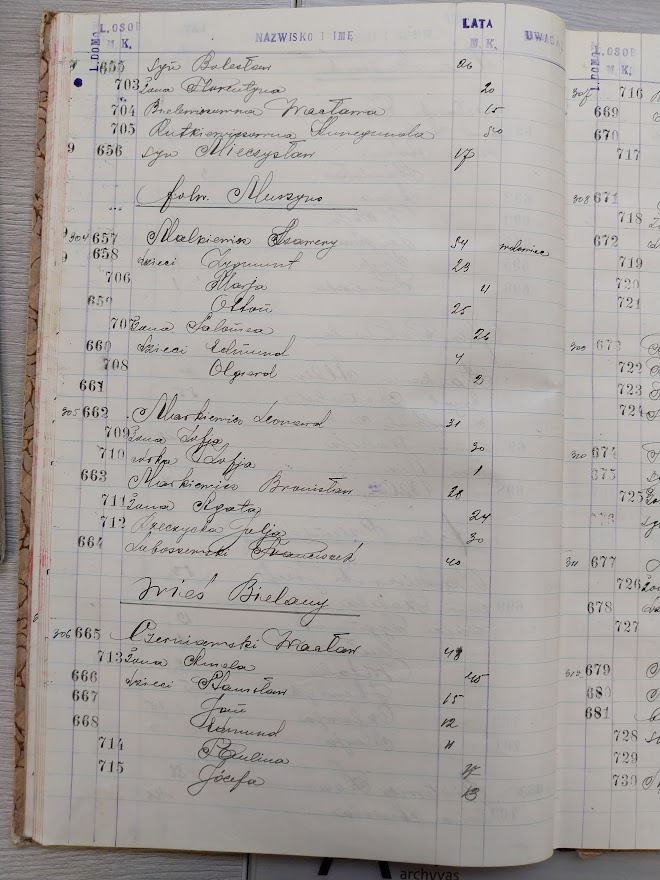 L. DOMU L. OSOB M. K. NAZWISKO I IMĘ LATA M. K. UWAGA
655 syn Bolesław 26
703 Żona Florentyna 20
704 Wacława 15
705 Kunegunda 50
9 656 syn Mieczysław 17
folw. Muszyno
304 657 Malkiewicz Ksawery 54
658 dzieci Zygmunt 23
706 Marja 11
659 Otton 25
707 Żona Salomea 26
660 dzieci Edmund 4
708 Olgierd 2
661
305 662 Markiewicz Leonard 31
709 Żona Zofja 30
710 córka Zofja 1
663 Markiewicz Bronisław 28
711 Żona Agata 24
712 Rzeczycka Julja 30
664 40
wieś Bielany
306 665 Czerniawski Wacław 48
713 Żona Aniela 45
666 dzieci Stanisław 15
667 Jan 12
668 Edmund 11
714 Paulina
715 Józefa 13
L. DOMU L. OSOB M. K.
307 716
669
670
717
308 671
718
672
719
720
721
309 673
722
723
724
310 674
675
725
676
311 677
726
678
727
312 679
680
681
728
729
730
archyvas